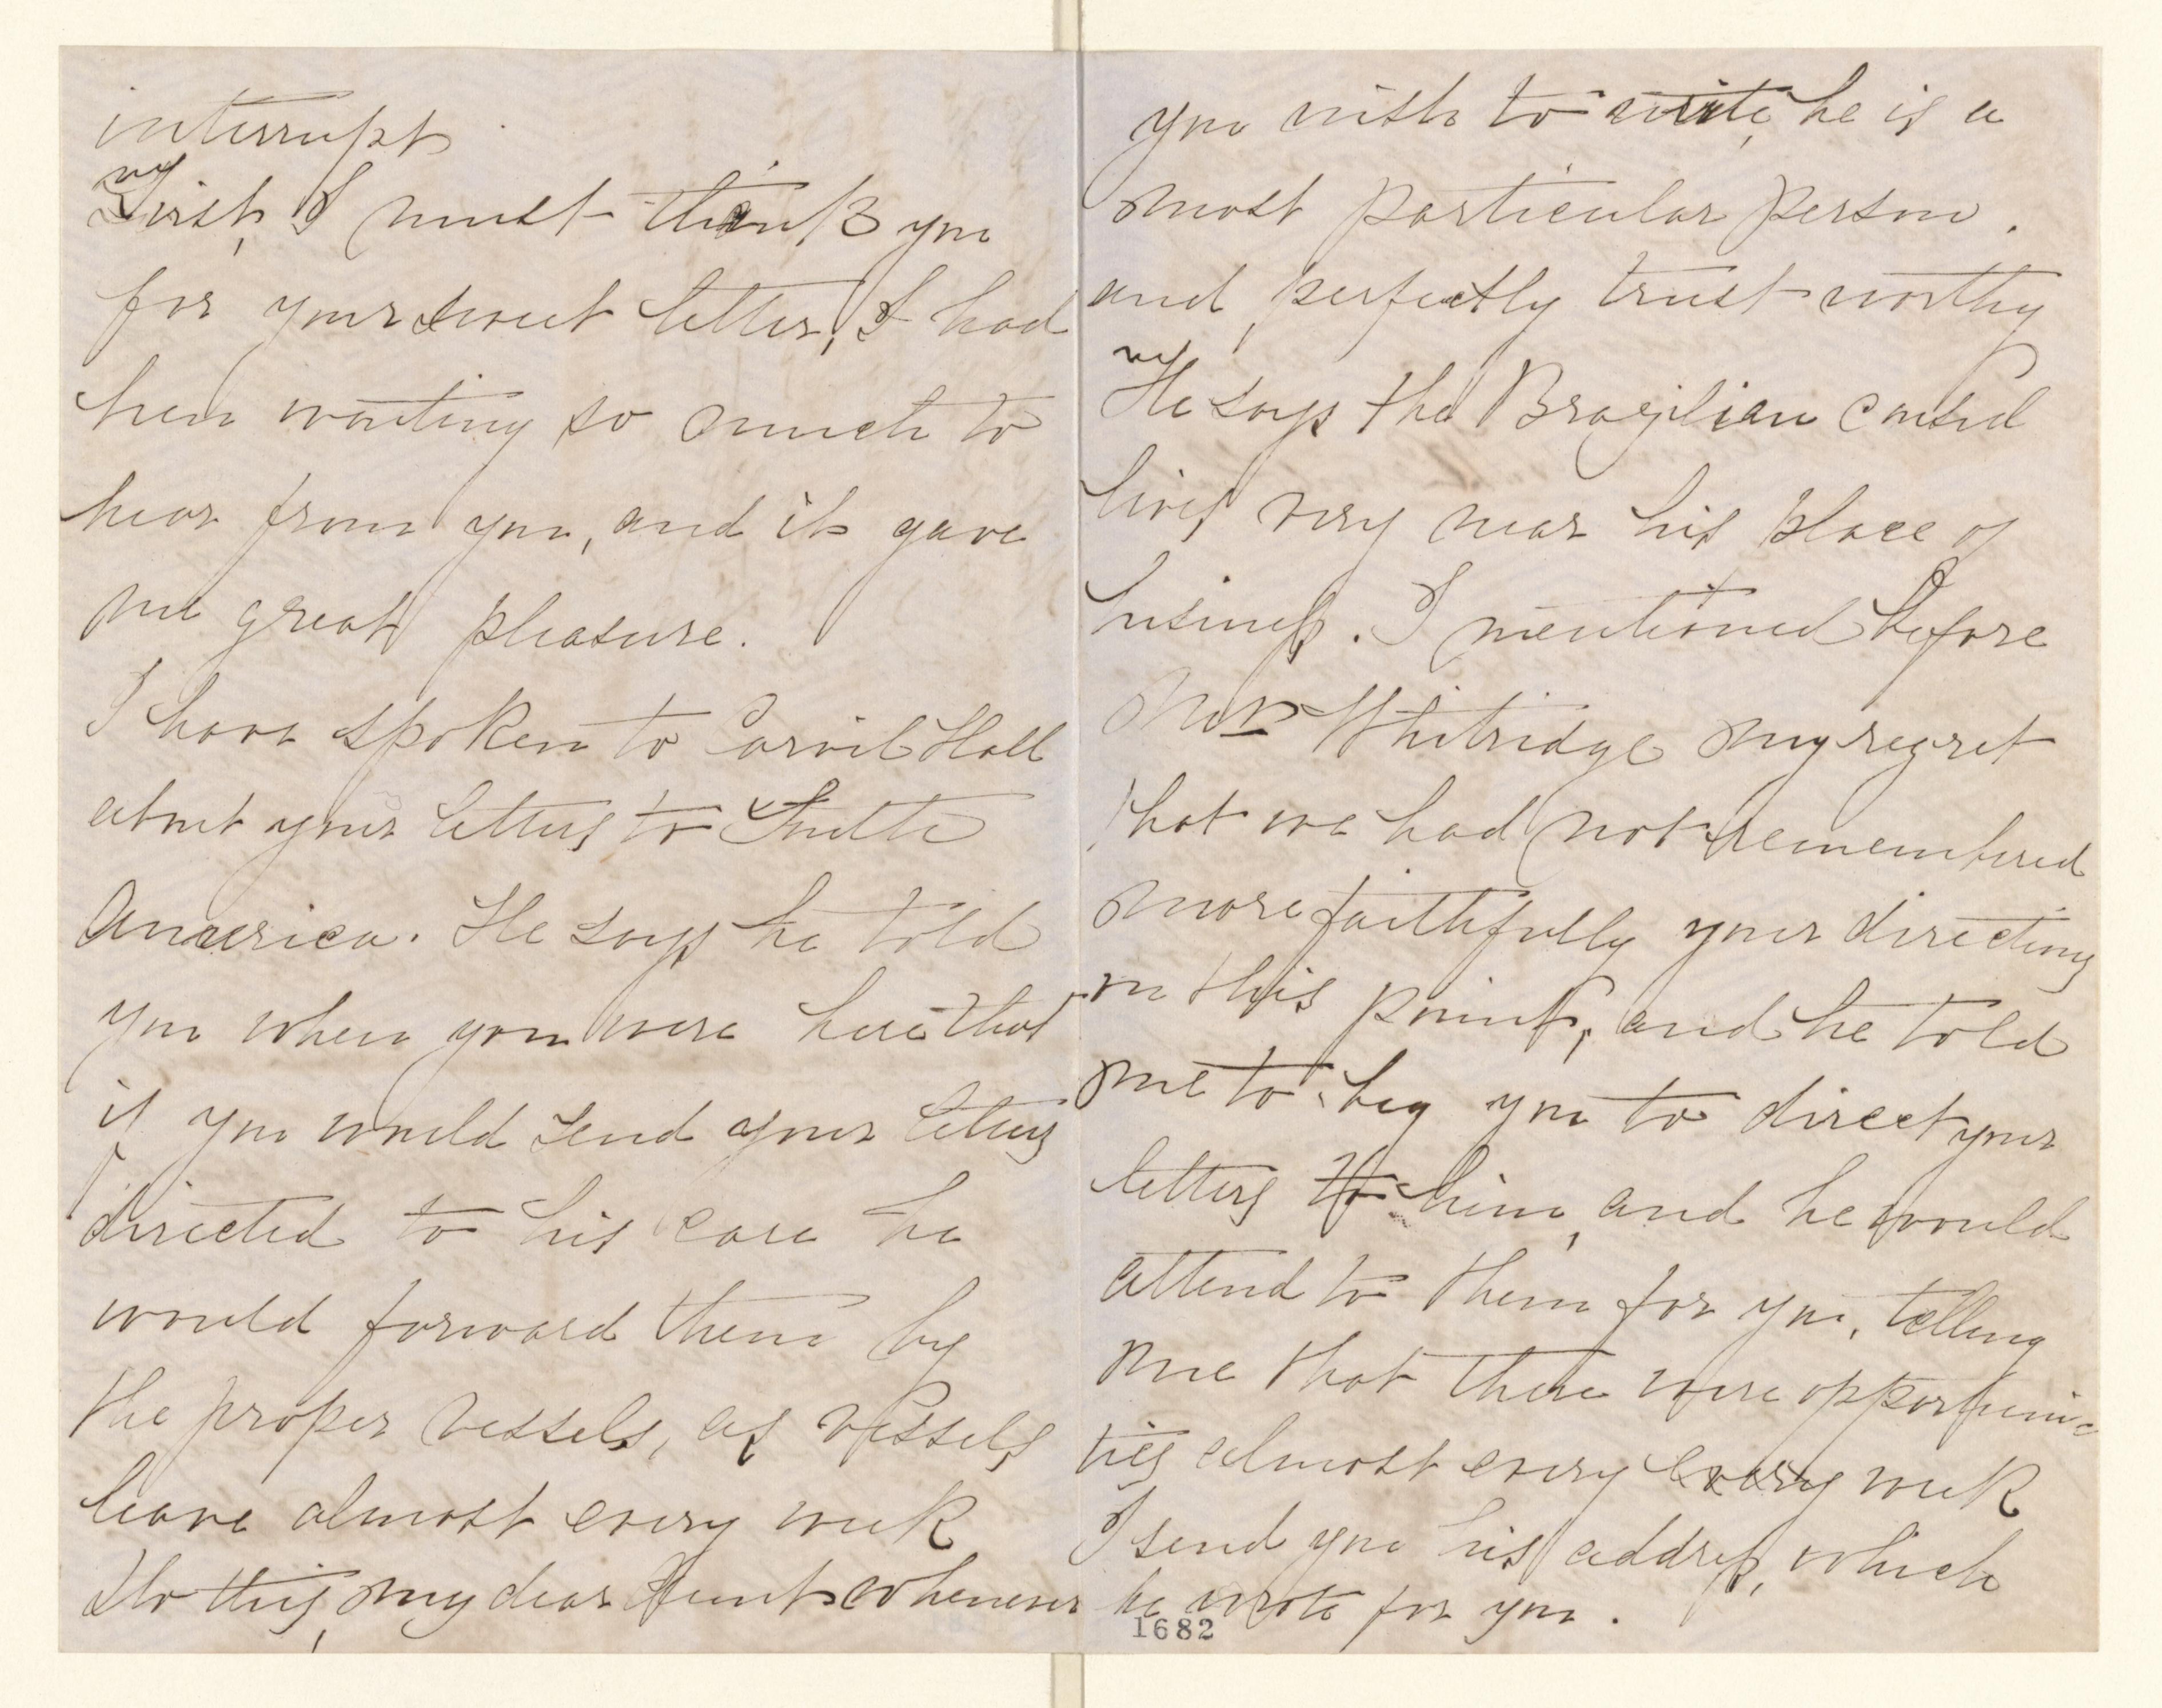 interrupt
First, I must thank you
for your sweet letter, I had
been wanting so much to
hear from you, and it gave
me great pleasure.
I have spoken to Carvil Hall
about your letters to South
America. He says he told
you when you were here that
if you would send your letters
directed to his care he
would forward them by
the proper vessels, as vessels
leave almost every week
Do this, my dear Aunt whenever
you wish to write, he is a
most particular person.
and perfectly trust worthy
He says the Brazilian Consul
lives very near his place of
business. I mentioned before
Whitridge my regret
that we had not remembered
more faithfully your directions
on this point, and he told
me to beg you to direct your
letters to him, and he would
attend to them for you, telling
me that there were opportuni-
ties almost every every week
I send you his address, which
he wrote for you.
1682